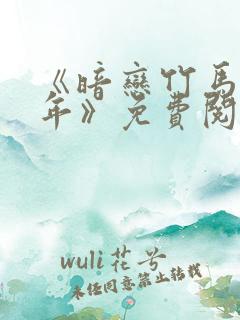 《暗戀竹馬
年》免費閱
wuli花兮
未经同意禁止转载